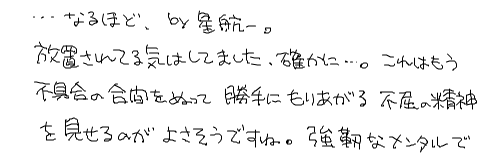 …なるほど、by 星航一。
放置されてる気はしてました、確かに…。これはもう
不具合の合間をぬって 勝手にもりあがる 不屈の精神
を見せるのが よさそうですね。強靭なメンタルで